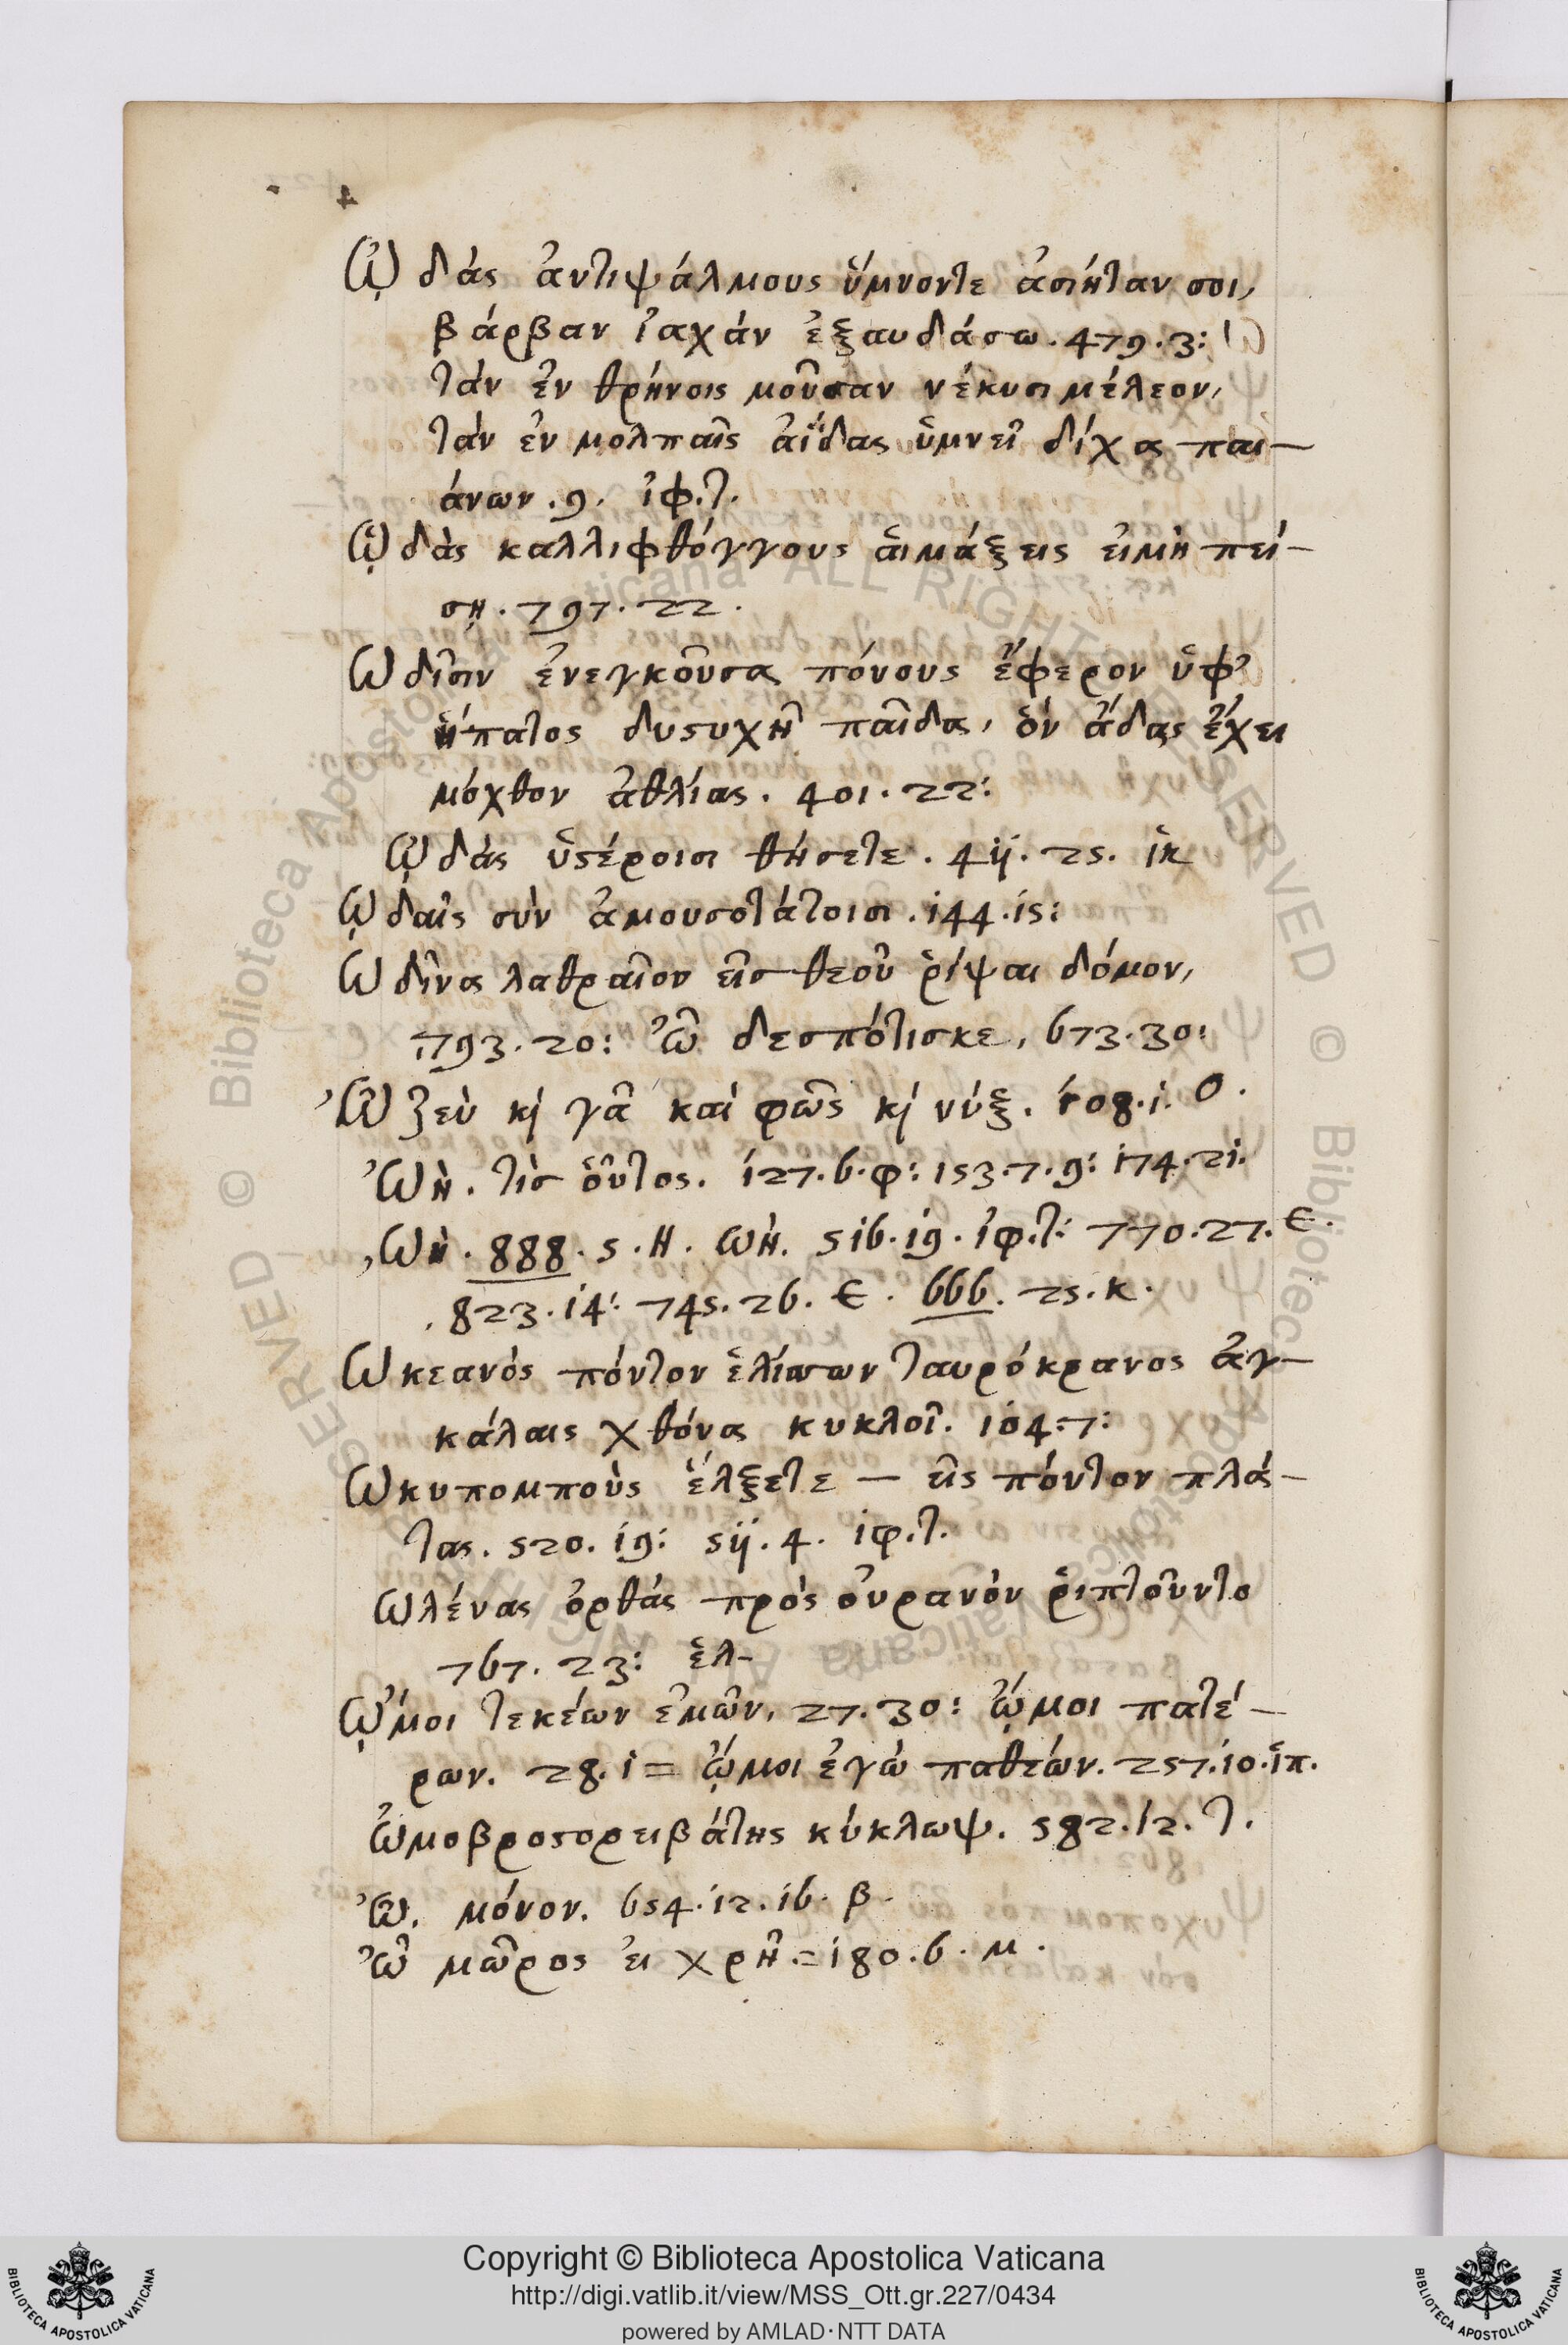 ᾨδὰς ἀντιψάλμους ὕμνοντε ἀσιήταν σοι,
βάρβαν ἰαχάν ἐξαυδάσω. 479. 3:
τάν ἐν θρήνοις μοῦσαν νέκυσι μέλεον,
τάν ἐν μολπαῖς ἀΐδας ὑμνεῖ δίχα παι-
άνων. 9. ἰφ. τ.
ᾨδὰς καλλιφθόγγους ἁιμάξεις ειμὴ πεί-
σῃ. 797. 22.
Ωδῖσιν ἐνεγκοῦσα πόνους ἔφερον ὑφ'
ἥπατος δυςυχῆ παῖδα, ὃν ἅδας ἔχει
μόχθον ἀθλίας. 401. 22:
ᾨδάς ὑςέροισι θήσετε. 4ii. 25. ἱκ
ᾨδαῖς σὺν ἀμουσοτάτοισι. 144. 15:
Ωδῖνα λαθραῖον εἰσ θεοῦ ῥίψαι δόμον,
793. 20: Ὦ δεσπότισκε, 673. 30:
Ὦ ζεὺ κὶ γᾶ καὶ φῶς κὶ νύξ. 108. i. Ο.
Ὠὴ. τὶσ οὗτος. 127. 6. φ: 153. 7. 9: 174. 21.
Ὠὴ. 888. 5. Η. ωὴ. 516. 19. ἰφ. τ: 770. 27. Ε.
823. 14: 745. 26. Ε. 666. 25. κ.
Ωκεανὸς πόντον ἑλίσσων ταυρόκρανος ἀγ-
κάλαις χθόνα κυκλοῖ. 104: 7:
Ωκυπομποὺς ἕλξετε — εἰς πόντον πλά-
τας. 520. 19: 5ii. 4. ἰφ. τ.
Ωλένας ὀρθάς πρὸς οὐρανὸν ῥιπτοῦντο
767. 23: ἑλ-
ᾬμοι τεκέων ἐμῶν, 27. 30: ᾤμοι πατέ-
ρων. 28. i = ᾤμοι ἐγὼ παθεών. 257. 10. ἱπ.
Ὠμοβροςορειβάτης κύκλωψ. 582. 12. τ.
Ὦ. μόνον. 654. 12. 16. β.
Ὦ μῶρος ἐι χρῆ. = 180. 6. μ.
Copyright © Biblioteca Apostolica Vaticana
http://digi.vatlib.it/view/MSS_Ott.gr.227/0434
powered by AMLAD·NTT DATA